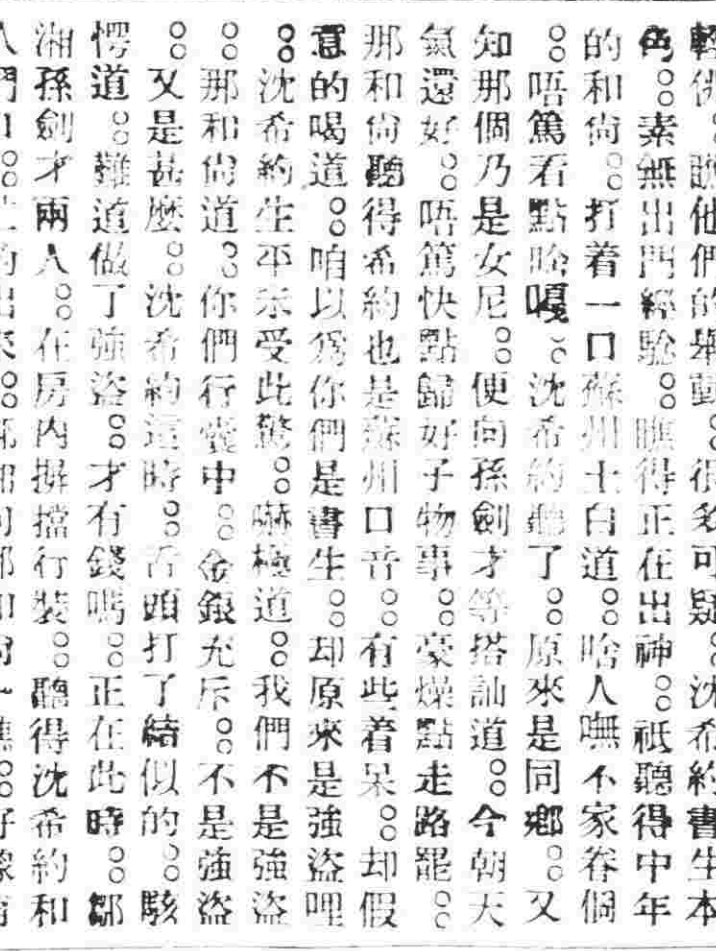 輕佻。瞧他們的舉動。很多可疑。沈希約書生本
色。素無出門經驗。瞧得正在出神。祇聽得中年
的和尙。打着一口蘇州土白道。啥人嘸不家眷個
。唔篤看點啥嗄。沈希約聽了。原來是同鄕。又
知那個乃是女尼。便向孫劍才等搭訕道。今朝天
氣還好。唔篤快點歸好子物事。豪燥點走路罷。
那和尙聽得希約也是蘇州口音。有些着呆。却假
意的喝道。咱以爲你們是書生。却原來是強盜哩
。沈希約生平未受此驚。嚇極道。我們不是強盜
。那和尙道。你們行囊中。金銀充斥。不是強盜
。又是甚麼。沈希約這時。舌頭打了結似的。駭
愕道。難道做了強盜。才有錢嗎。正在此時。鄒
湘孫劍才兩人。在房內摒擋行裝。聽得沈希約和